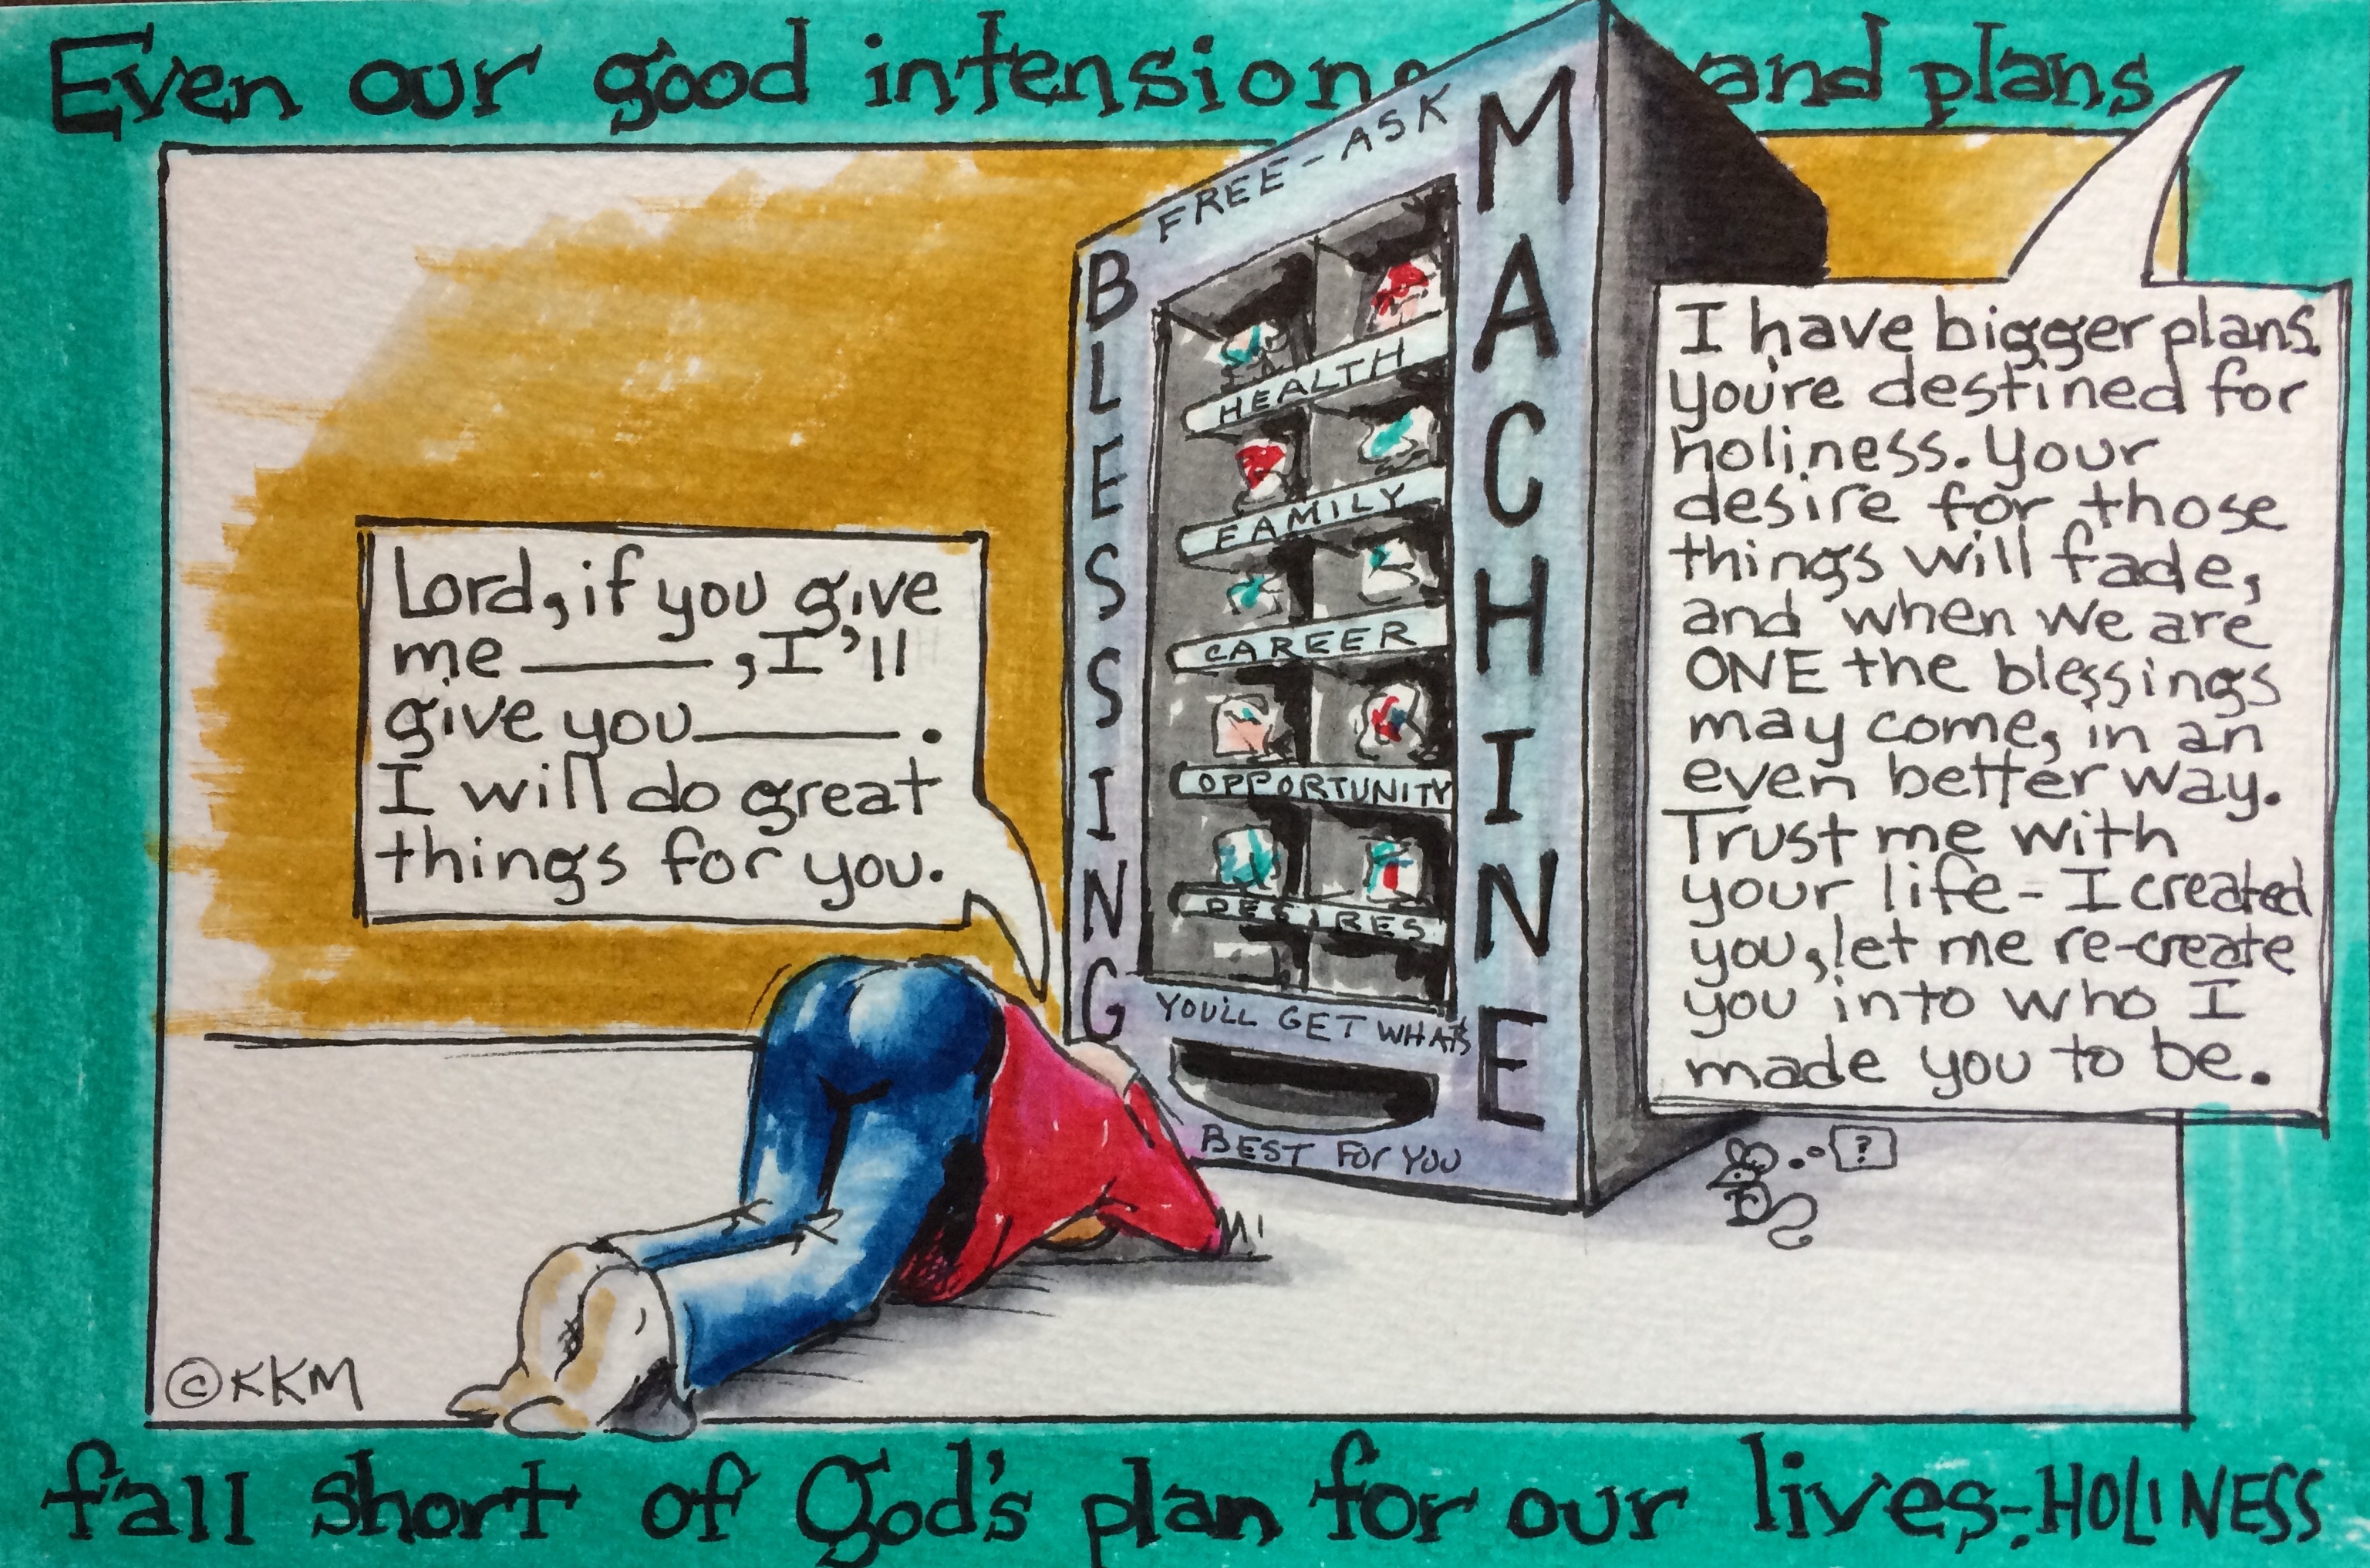 Even our good intensions and plans
FREE-ASK
BLESSING
MACHINE
HEALTH
FAMILY
CAREER
OPPORTUNITY
DESIRES
YOU'LL GET WHATS
BEST For YOU
Lord, if you give
me ______, I'll
give you______.
I will do great
things for you.
I have bigger plans.
you're destined for
holiness. Your
desire for those
things will fade,
and when we are
ONE the blessings
may come, in an
even better way.
Trust me with
your life - I created
you, let me re-create
you into who I
made you to be.
?
©KKM
fall short of God's plan for our lives-HOLINESS